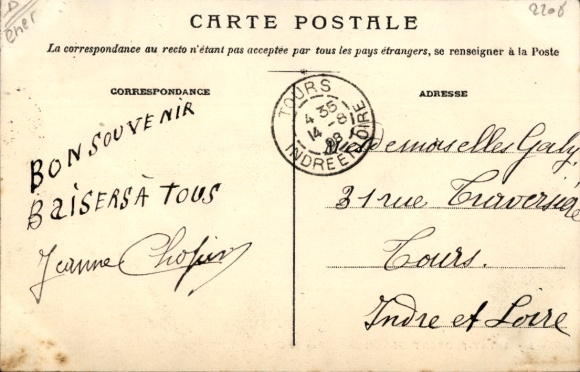 2206
CARTE POSTALE
La correspondance au recto n'étant pas acceptée par tous les pays étrangers, se renseigner à la Poste
CORRESPONDANCE
BON SOUVENIR
BAISERS À TOUS
Jeanne
ADRESSE
TOURS
4 35
14 - 8
08
INDRE ET LOIRE
Mesdemoiselles Galy
31 rue Traversière
Tours.
Indre et Loire